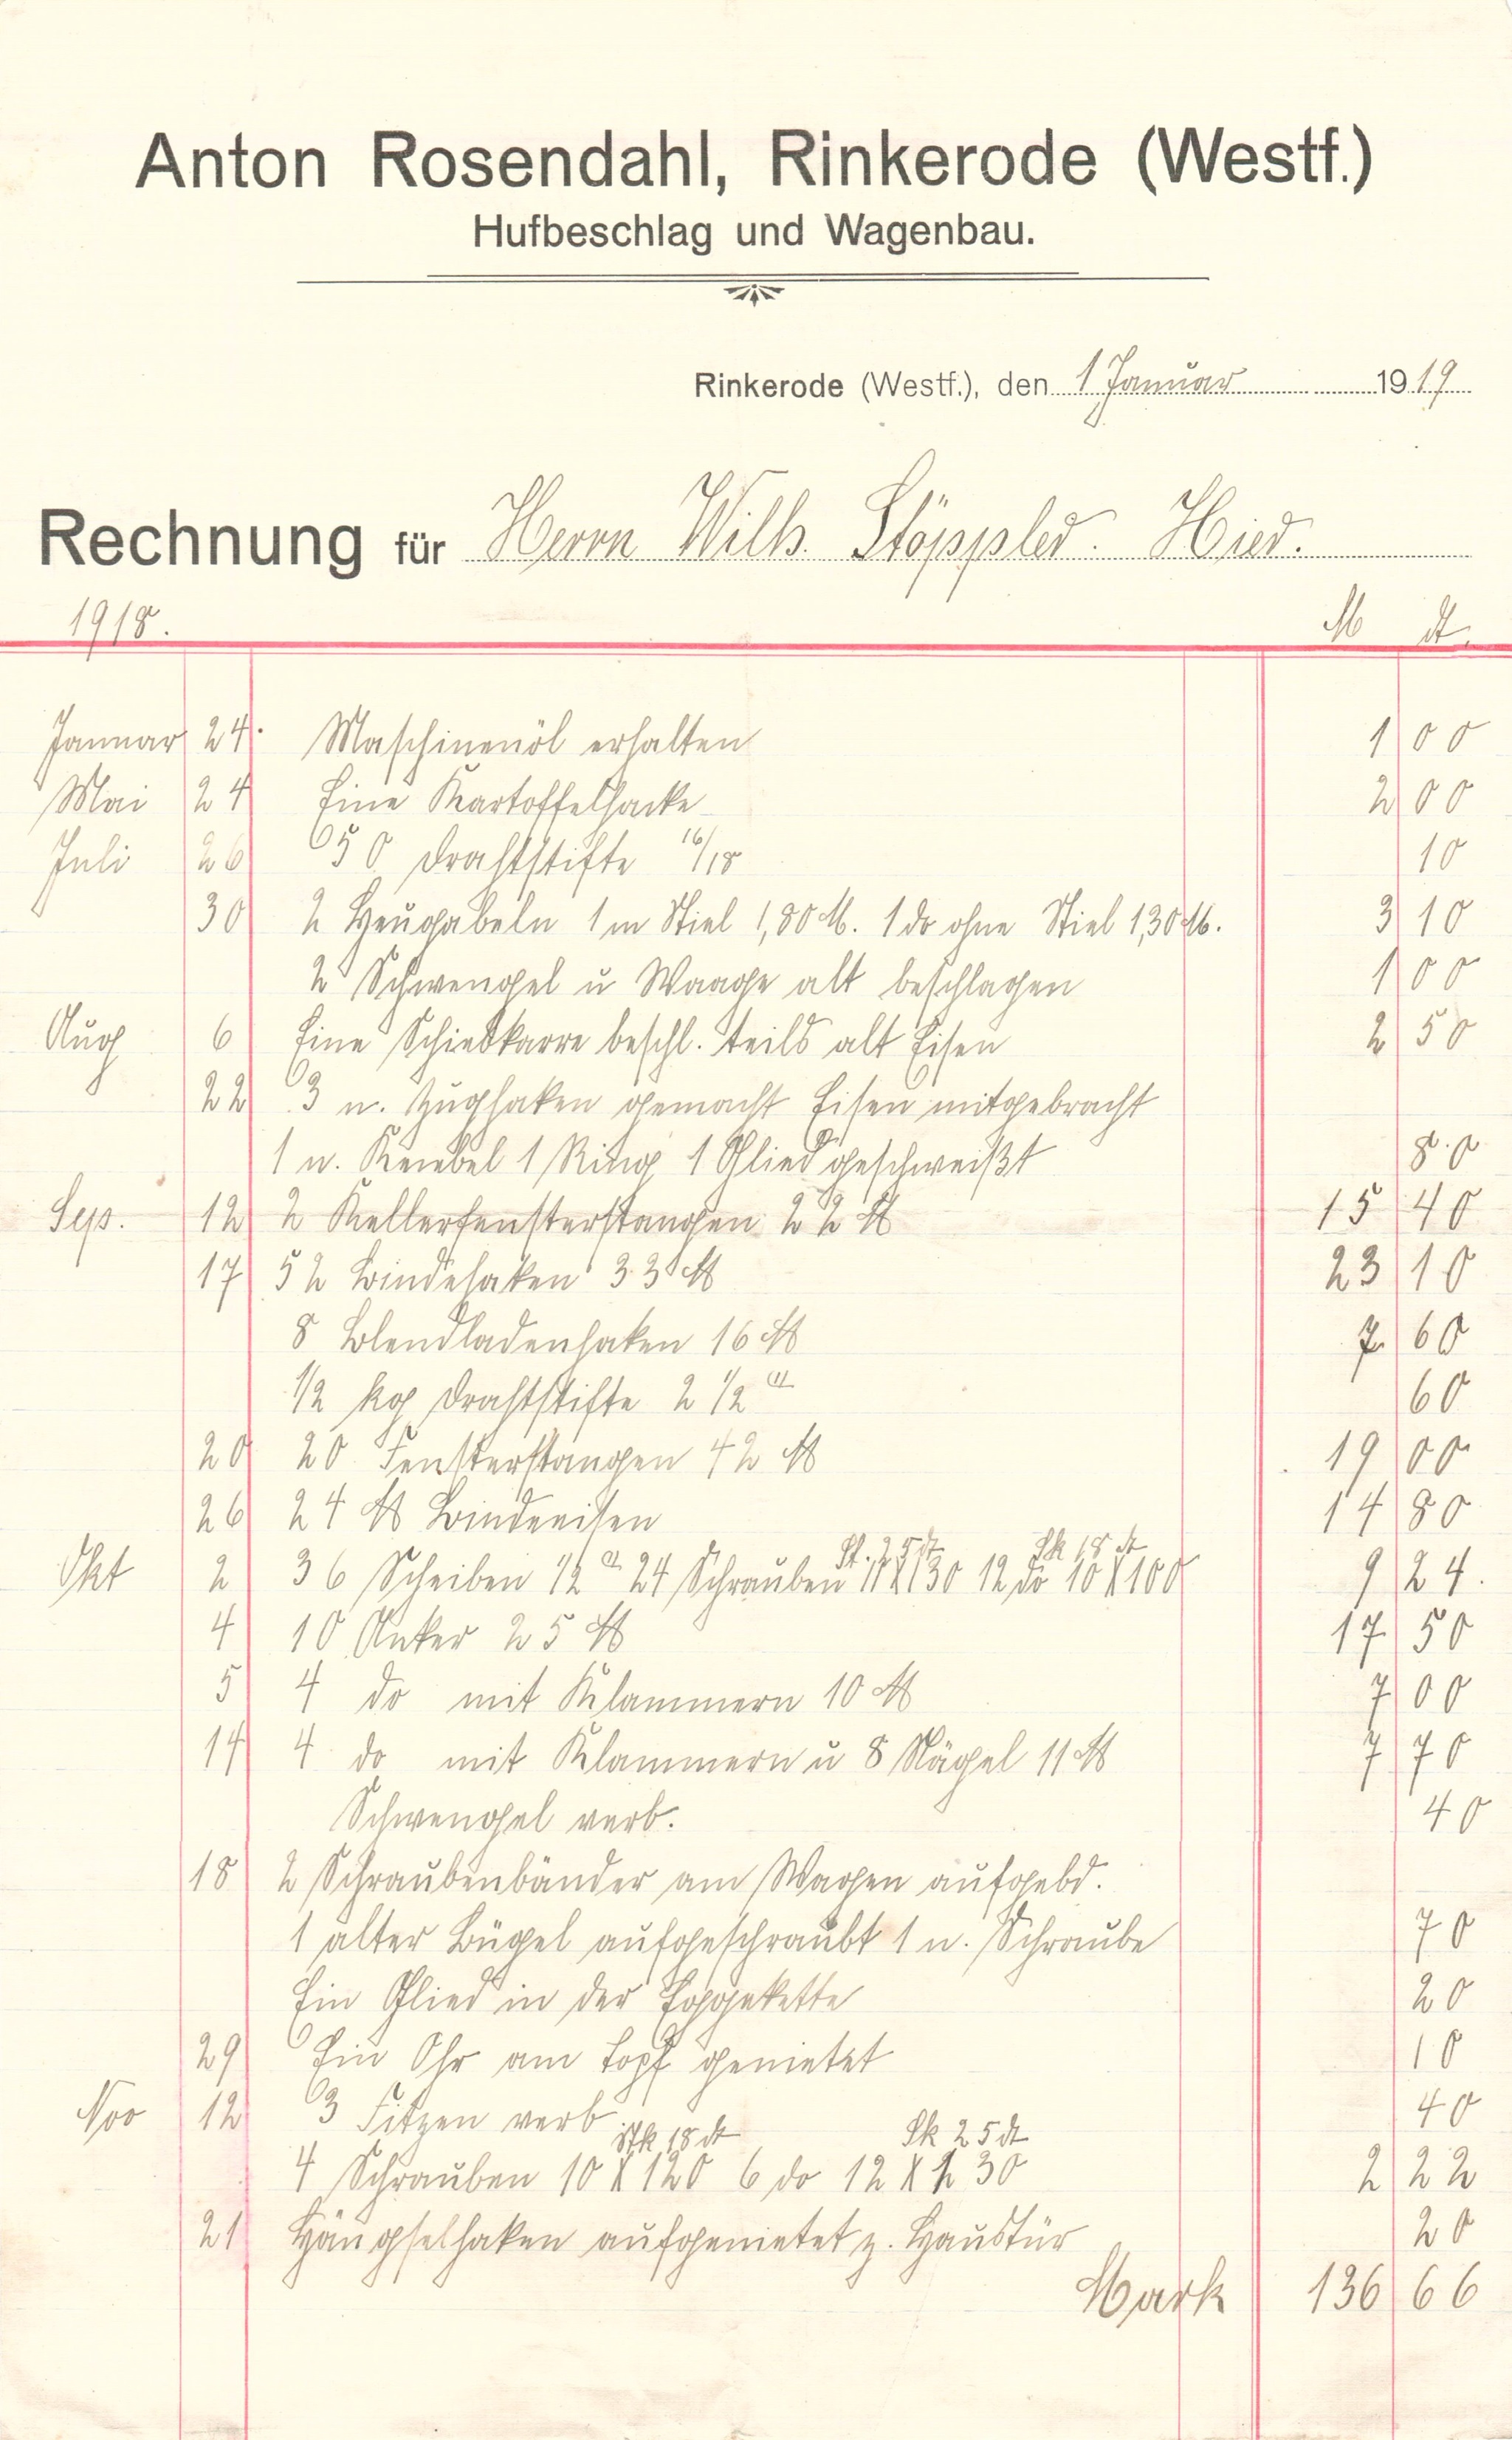 Anton Rosendahl, Rinkerode (Westf.)
Hufbeschlag und Wagenbau.
Rinkerode (Westf.), den 1 Januar 1919
Rechnung für Herrn Wilh. Stöppler.
1918. M ₰.
Januar 24. Maschinenöl erhalten 1 00
Mai 24 Eine Kartoffelhacke 2 00
Juli 26 50 Drahtstifte 16/18 10
30 2 Heugabeln 1 m Stiel 1,80 M. 1 do ohne Stiel 1,30 M. 3 10
2 Schwengel u Waage alt beschlagen 1 00
Aug 6 Eine Schiebkarre beschl. teils alt Eisen 2 50
22 3 n. Zughaken gemacht Eisen mitgebracht
1 n. Knebel 1 Ring 1 Glied geschweißt
Sep. 12 2 Kellerfensterstangen 22 ℔ 15 40
17 52 Bindehaken 33 ℔ 23 10
8 Blendladenhaken 16 ℔ 7 60
1/2 kg Drahtstifte 2 1/2 " 60
20 20 Fensterstangen 42 ℔ 19 00
26 24 ℔ Bindeeisen 14 80
St. 25 ₰ Stk 18 ₰
Okt 2 36 Scheiben 24 Schrauben 12 do 10 X 100 9 24.
4 10 Anker 25 ℔ 17 50
5 4 do mit Klammern 10 ℔ 7 00
14 4 do mit Klammern u 8 Nägel 11 ℔ 7 70
Schwengel verb. 40
18 2 Schraubenbänder am Wagen aufgebd.
1 alter Bügel aufgeschraubt 1 n. Schraube 70
Ein Glied in der Eggekette 20
29 Ein Ohr am Topf genietet 10
Nov 12 3 verb 40
Stk 18 ₰ Stk 25 ₰
4 Schrauben 10 X 120 6 do 12 X 130 2 22
21 Hängselhaken aufgenietet z. Haustür 20
Mark 136 66